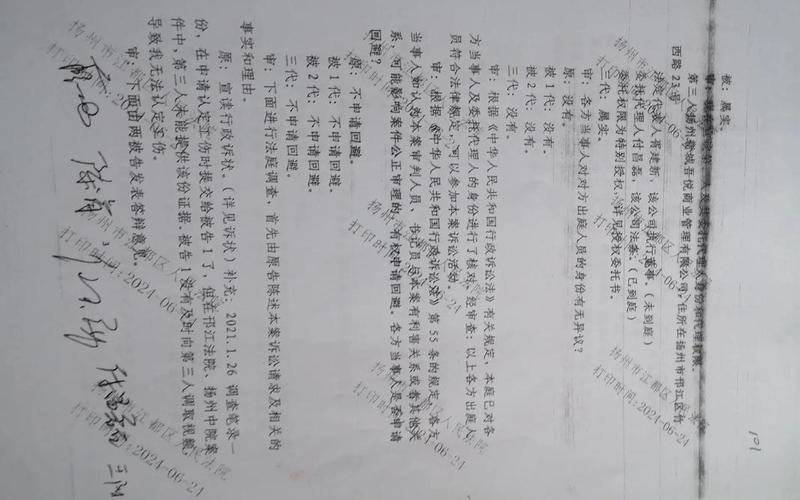 101
被：属实。
第三人扬州邗城吾悦商业管理有限公司，住所在扬州市邗江区竹
西路23号
法定代表人胥建新，该公司执行董事。（未到庭）
委托代理人付昌磊，该公司法务。（已到庭）
委托权限为特别授权，详见授权委托书。
三代：属实。
审：各方当事人对对方出庭人员的身份有无异议？
原：没有。
被1代：没有。
被2代：没有。
三代：没有。
审：根据《中华人民共和国行政诉讼法》有关规定，本庭已对各
方当事人及委托代理人的身份进行了核对，经审查：以上各方出庭人
员符合法律规定，可以参加本案诉讼活动。
审：根据《中华人民共和国行政诉讼法》第55条的规定，各方
当事人如认为本案审判人员、书记员与本案有利害关系或者其他关
系，可能影响案件公正审理的，有权申请回避。各方当事人是否申请
回避？
原：不申请回避。
被1代：不申请回避。
被2代：不申请回避。
三代：不申请回避。
审：下面进行法庭调查，首先由原告陈述本案诉讼请求及相关的
事实和理由。
原：宣读行政诉状，（详见诉状）补充：2021.1.26调查笔录一
份，在申请认定工伤时提交给被告1了，但在邗江法院、扬州中院案
件中，第三人未能提供该份证据。被告1没有及时向第三人调取视频
导致我无法认定工伤。
审：下面由两被告发表答辩意见。
扬州市江都区人民法院
打印时间:2024-06-24